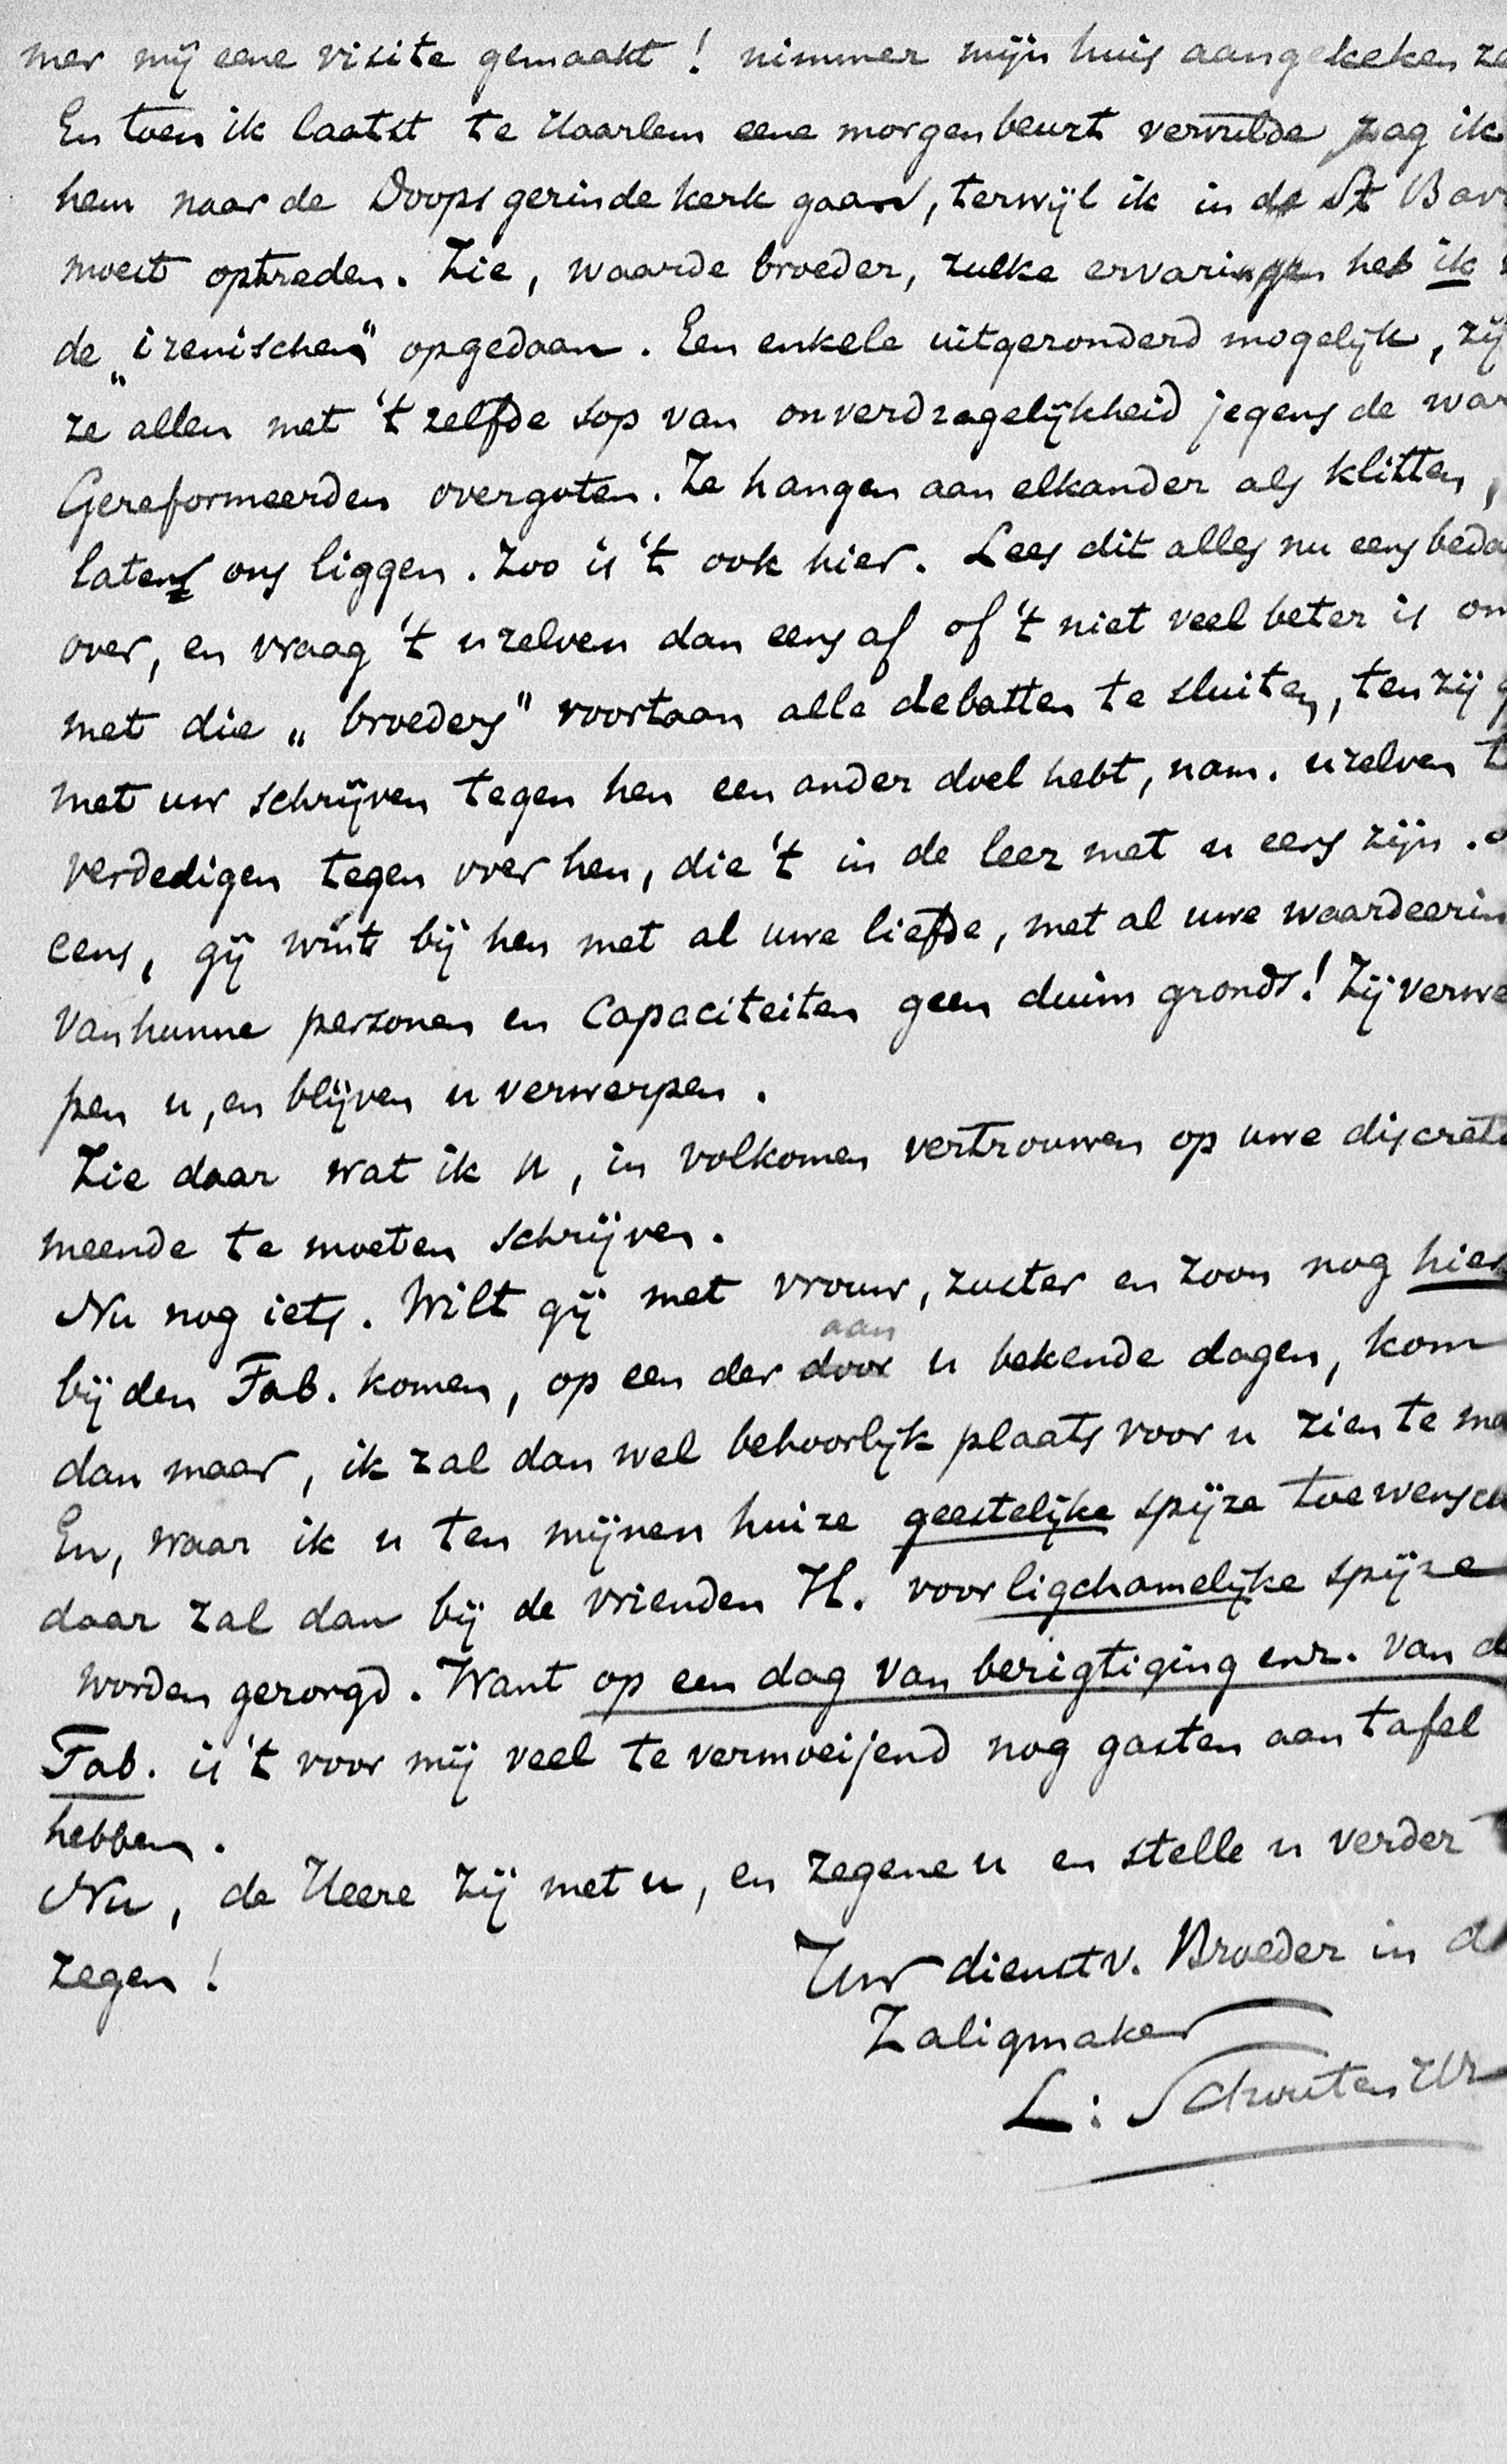 mer mij eene visite gemaakt! nimmer mijn huis aangekeken ze
En toen ik laatst te Haarlem eene morgenbeurt vervulde zag ik
hem naar de Doopsgezinde kerk gaan, terwijl ik in de St Bav
moest optreden. Zie, waarde broeder, zulke ervaringen heb ik
de „irenischen" opgedaan. Een enkele uitgezonderd mogelijk, zij
ze allen met 't zelfde sop van onverdragelijkheid jegens de war
Gereformeerden overgoten. Ze hangen aan elkander als klitten,
laten ons liggen. Zoo is 't ook hier. Lees dit alles nu eens beda
over, en vraag 't uzelven dan eens af of 't niet veel beter is om
met die „broeders" voortaan alle debatten te sluiten, tenzij g
met uw schrijven tegen hen een ander doel hebt, nam. uzelven t
verdedigen tegen over hen, die 't in de leer met u eens zijn.
eens, gij wint bij hen met al uwe liefde, met al uwe waardeerin
van hunne personen en capaciteiten geen duim gronds! Zij verwe
pen u, en blijven u verwerpen.
Zie daar wat ik u, in volkomen vertrouwen op uwe discreti
meende te moeten schrijven.
Nu nog iets. Wilt gij met vrouw, zuster en zoon nog hier
aan
bij den Tab. komen, op een der door u bekende dagen, kom
dan maar, ik zal dan wel behoorlijk plaats voor u zien te ma
En, waar ik u ten mijnen huize geestelijke spijze toewensch
daar zal dan bij de vrienden H. voor ligchamelijke spijze
worden gezorgd. Want op een dag van berigtiging enz. van d
Tab. is 't voor mij veel te vermoeijend nog gasten aan tafel
hebben.
Nu, de Heere zij met u, en zegene u en stelle u verder
zegen!
Uw dienstv. Broeder in d
Zaligmaker
L: Schouten Hz